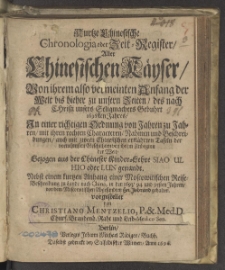 Kurtze Chinesische
Chronologia oder Zeit-Register/
Aller
Chinesischen Käyser/
Von ihrem also vermeinten Anfang der
Welt bis hieher zu unsern Zeiten/ des nach
Christi unsers Seligmachers Gebuhrt
1696sten Jahres/
In einer richtigen Ordnung von Jahren zu Jah-
ren/ mit ihren rechten Characteren/ Nahmen und
auch mit zween Chinesischen erklährten Taffeln der
ihrem Lande
Gezogen aus der Chineser Kinder-Lehre SIAO UL
HIO oder LUN genandt.
Nebst einem kurtzen Anhang einer Moscowitischen Reise-
Beschreibung zu Lande nach China, in den 1693/ 94 und 95sten Jahren/
von dem Moscowitischen Abgesandten Hn. Isbrand gehalten/
vorgestellet
von
CHRISTIANO MENTZELIO, P. & Med. D.
Churf. Brandenb. Raht und Leib-Medico Sen.
Berlin/
Verlegts Johann Michael Rüdiger/ Buchh.
Daselbst gedruckt mit Salfeldischer Wittwe/ Anno 1696.